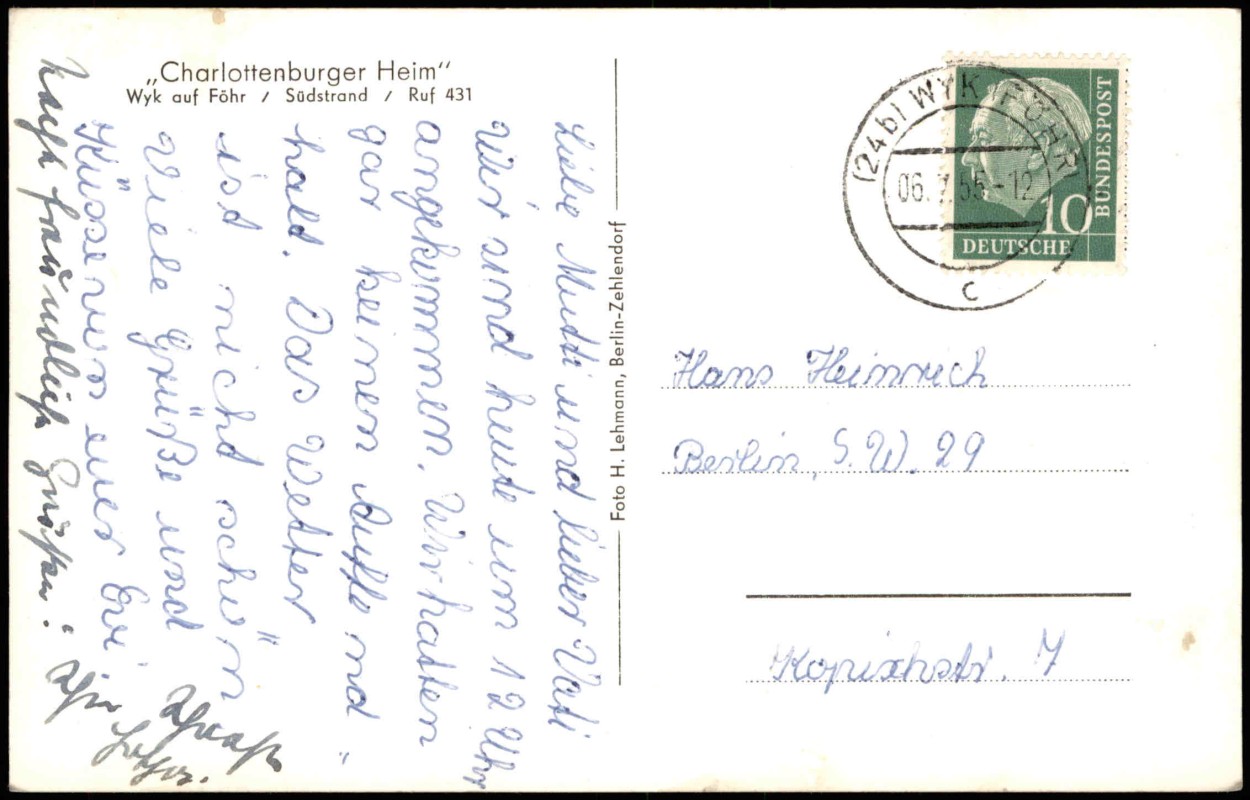 „Charlottenburger Heim“
Wyk auf Föhr / Südstrand / Ruf 431
Liebe Mutti und lieber Vati
Wir sind heute um 12 Uhr
angekommen. Wir hatten
gar keinen Auffend-
hald. Das Wetter
ist nicht schön
Viele Grüße und
Küsse von euer Evi
Recht freundliche
Ihr
Foto H. Lehmann, Berlin-Zehlendorf
(24b) WYK FÖHR
06. 7. 55 - 12
c
DEUTSCHE BUNDESPOST
10
Hans Heinrich
Berlin, S.W. 29
Kopischstr. 7